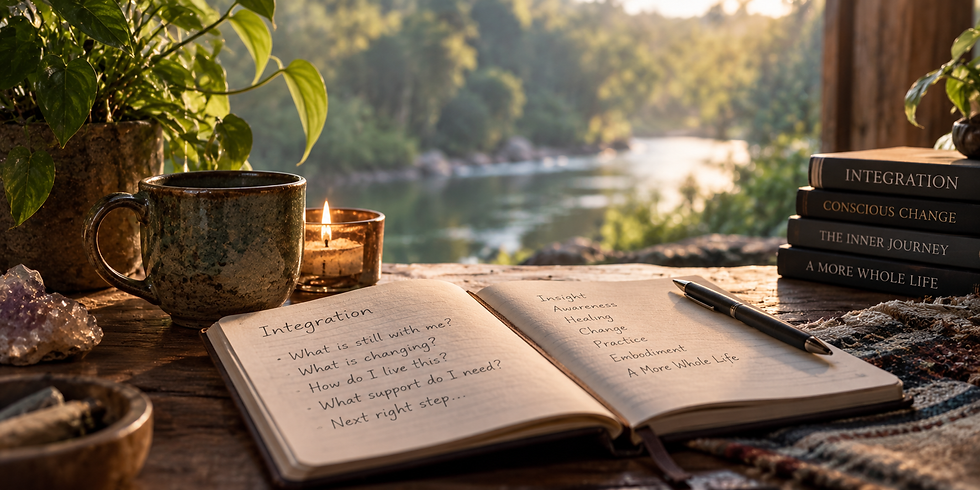 Integration
- What is still with me?
- What is changing?
- How do I live this?
- What support do I need?
- Next right step...
Insight
Awareness
Healing
Change
Practice
Embodiment
A More Whole Life
INTEGRATION
CONSCIOUS CHANGE
THE INNER JOURNEY
A MORE WHOLE LIFE